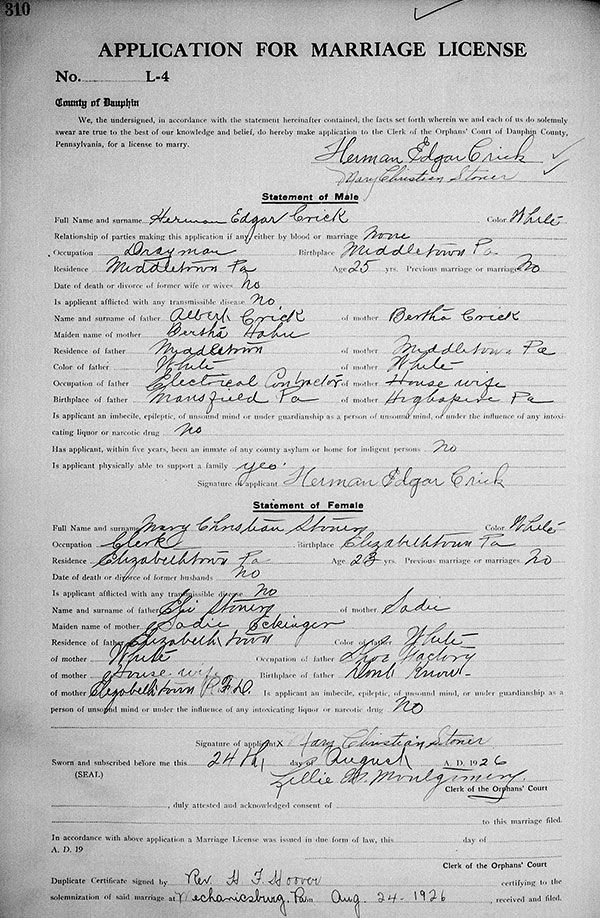 310
APPLICATION FOR MARRIAGE LICENSE
No. L-4
County of Dauphin
We, the undersigned, in accordance with the statement hereinafter contained, the facts set forth wherein we and each of us do solemnly
swear are true to the best of our knowledge and belief, do hereby make application to the Clerk of the Orphans' Court of Dauphin County,
Pennsylvania, for a license to marry.
Herman Edgar Crick
Mary Christian Stoner
Statement of Male
Full Name and surname Herman Edgar Crick Color White
Relationship of parties making this application if any, either by blood or marriage None
Occupation Drayman Birthplace Middletown Pa
Residence Middletown Pa Age 25 yrs. Previous marriage or marriages No
Date of death or divorce of former wife or wives No
Is applicant afflicted with any transmissible disease No
Name and surname of father Albert Crick of mother Bertha Crick
Maiden name of mother Bertha
Residence of father Middletown of mother Middletown Pa
Color of father White of mother White
Occupation of father Electrical Contractor of mother House wife
Birthplace of father Mansfield Pa of mother Pa
Is applicant an imbecile, epileptic, of unsound mind or under guardianship as a person of unsound mind, or under the influence of any intoxi-
cating liquor or narcotic drug No
Has applicant, within five years, been an inmate of any county asylum or home for indigent persons No
Is applicant physically able to support a family yes
Signature of applicant Herman Edgar Crick
Statement of Female
Full Name and surname Mary Christian Stoner Color White
Occupation Clerk Birthplace Elizabethtown Pa
Residence Elizabethtown Pa Age 23 yrs. Previous marriage or marriages No
Date of death or divorce of former husbands No
Is applicant afflicted with any transmissible disease No
Name and surname of father Eli Stoner of mother Sadie
Maiden name of mother Sadie Eckinger
Residence of father Elizabethtown Color of father White
of mother White Occupation of father Shoe Factory
of mother House wife Birthplace of father Dont Know
of mother Elizabethtown R.F.D. Is applicant an imbecile, epileptic, of unsound mind, or under guardianship as a
person of unsound mind or under the influence of any intoxicating liquor or narcotic drug No
Signature of applicant X Mary Christian Stoner
Sworn and subscribed before me this 24th day of August A. D. 1926
(SEAL) Lillie M. Montgomery
Clerk of the Orphans' Court
, duly attested and acknowledged consent of
to this marriage filed.
In accordance with above application a Marriage License was issued in due form of law, this day of
A. D. 19
Clerk of the Orphans' Court
Duplicate Certificate signed by Rev. H. F. Hoover certifying to the
solemnization of said marriage at Mechanicsburg, Pa on Aug. 24-1926, received and filed.